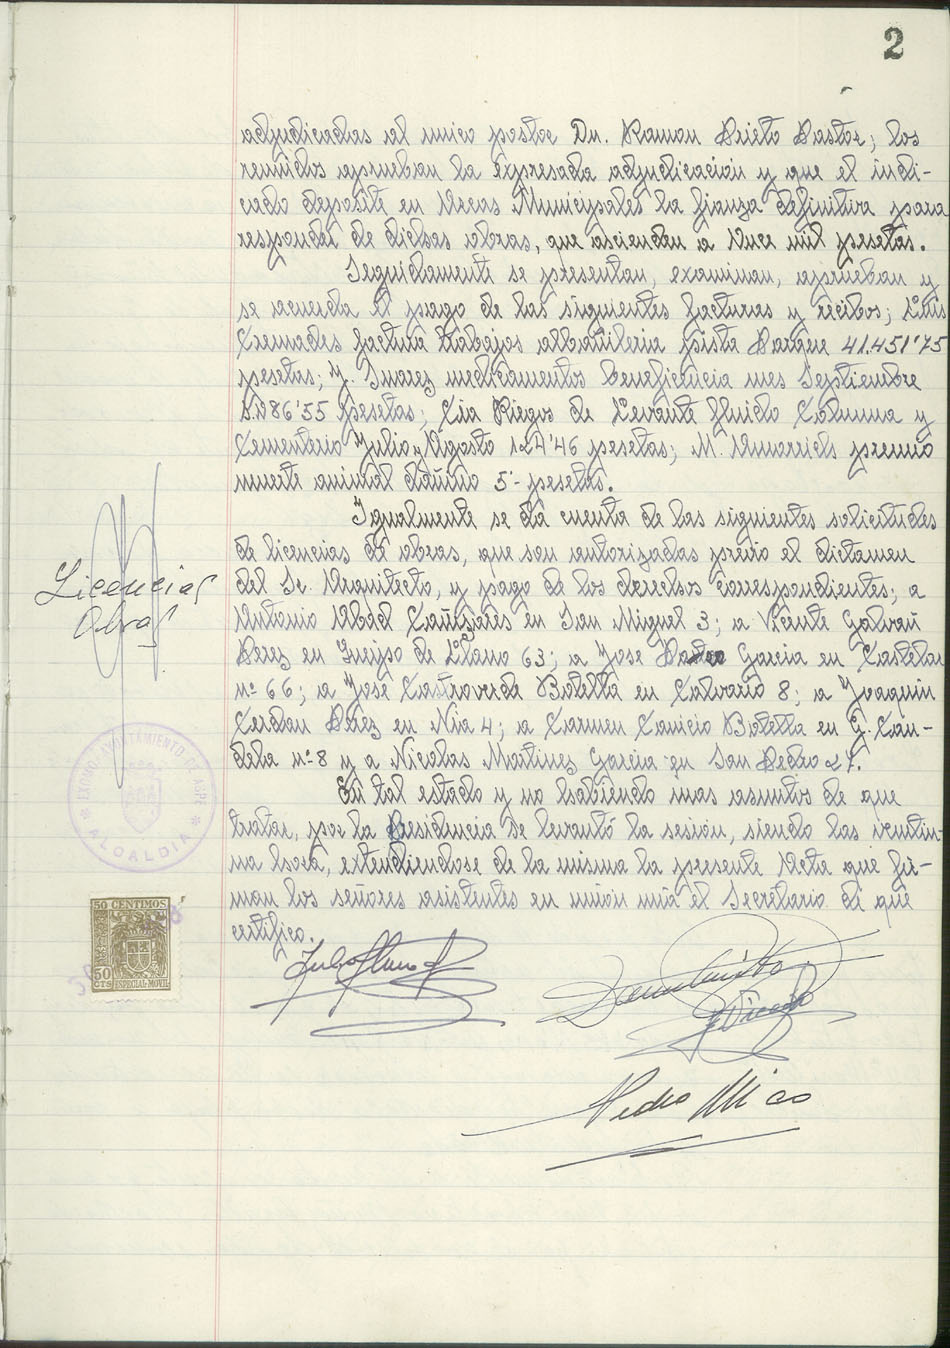 2
adjudicadas al unico postor Dn. Ramon Prieto Pastor; los
reunidos aprueban la expresada adjudicacion y que el indi-
cado deposite en Arcas Municipales la fianza definitiva para
responder de dichas obras, que ascienden a once mil pesetas.
Seguidamente se presentan, examinan, aprueban y
se acuerda el pago de las siguientes facturas y recibos; Luis
Cremades factura trabajos albañileria Pista Parque 41.451'75
pesetas; J. Suarez medicamentos beneficencia mes Septiembre
'55 pesetas; Cia Riegos de Levante fluido Columna y
Cementerio Julio y Agosto '46 pesetas; M. premio
muerte animal dañino 5'- pesetas.
Igualmente se da cuenta de las siguientes solicitudes
de licencias de obras, que son autorizadas previo el dictamen
del Sr. Arquitecto, y pago de los derechos correspondientes; a
Antonio Abad Cañizares en San Miguel 3; a Vicente Galvañ
Perez en Queipo de Llano 63; a Jose Garcia en Castelar
nº 66; a Jose Castroverde Botella en Calvario 8; a Joaquin
Cerdan Perez en Nia 4; a Carmen Canicio Botella en G. Can-
dela nº 8 y a Nicolas Martinez Garcia en San Pedro 27.
En tal estado y no habiendo mas asuntos de que
tratar, por la Presidencia se levantó la sesion, siendo las veintiu-
na hora, extendiendose de la misma la presente Acta que fir-
man los señores asistentes en union mia el Secretario de que
certifico.
Licencias
Obras
EXCMO. AYUNTAMIENTO DE ASPE
ALCALDIA
50 CENTIMOS
50
CTS
ESPECIAL MOVIL
Pedro Mico